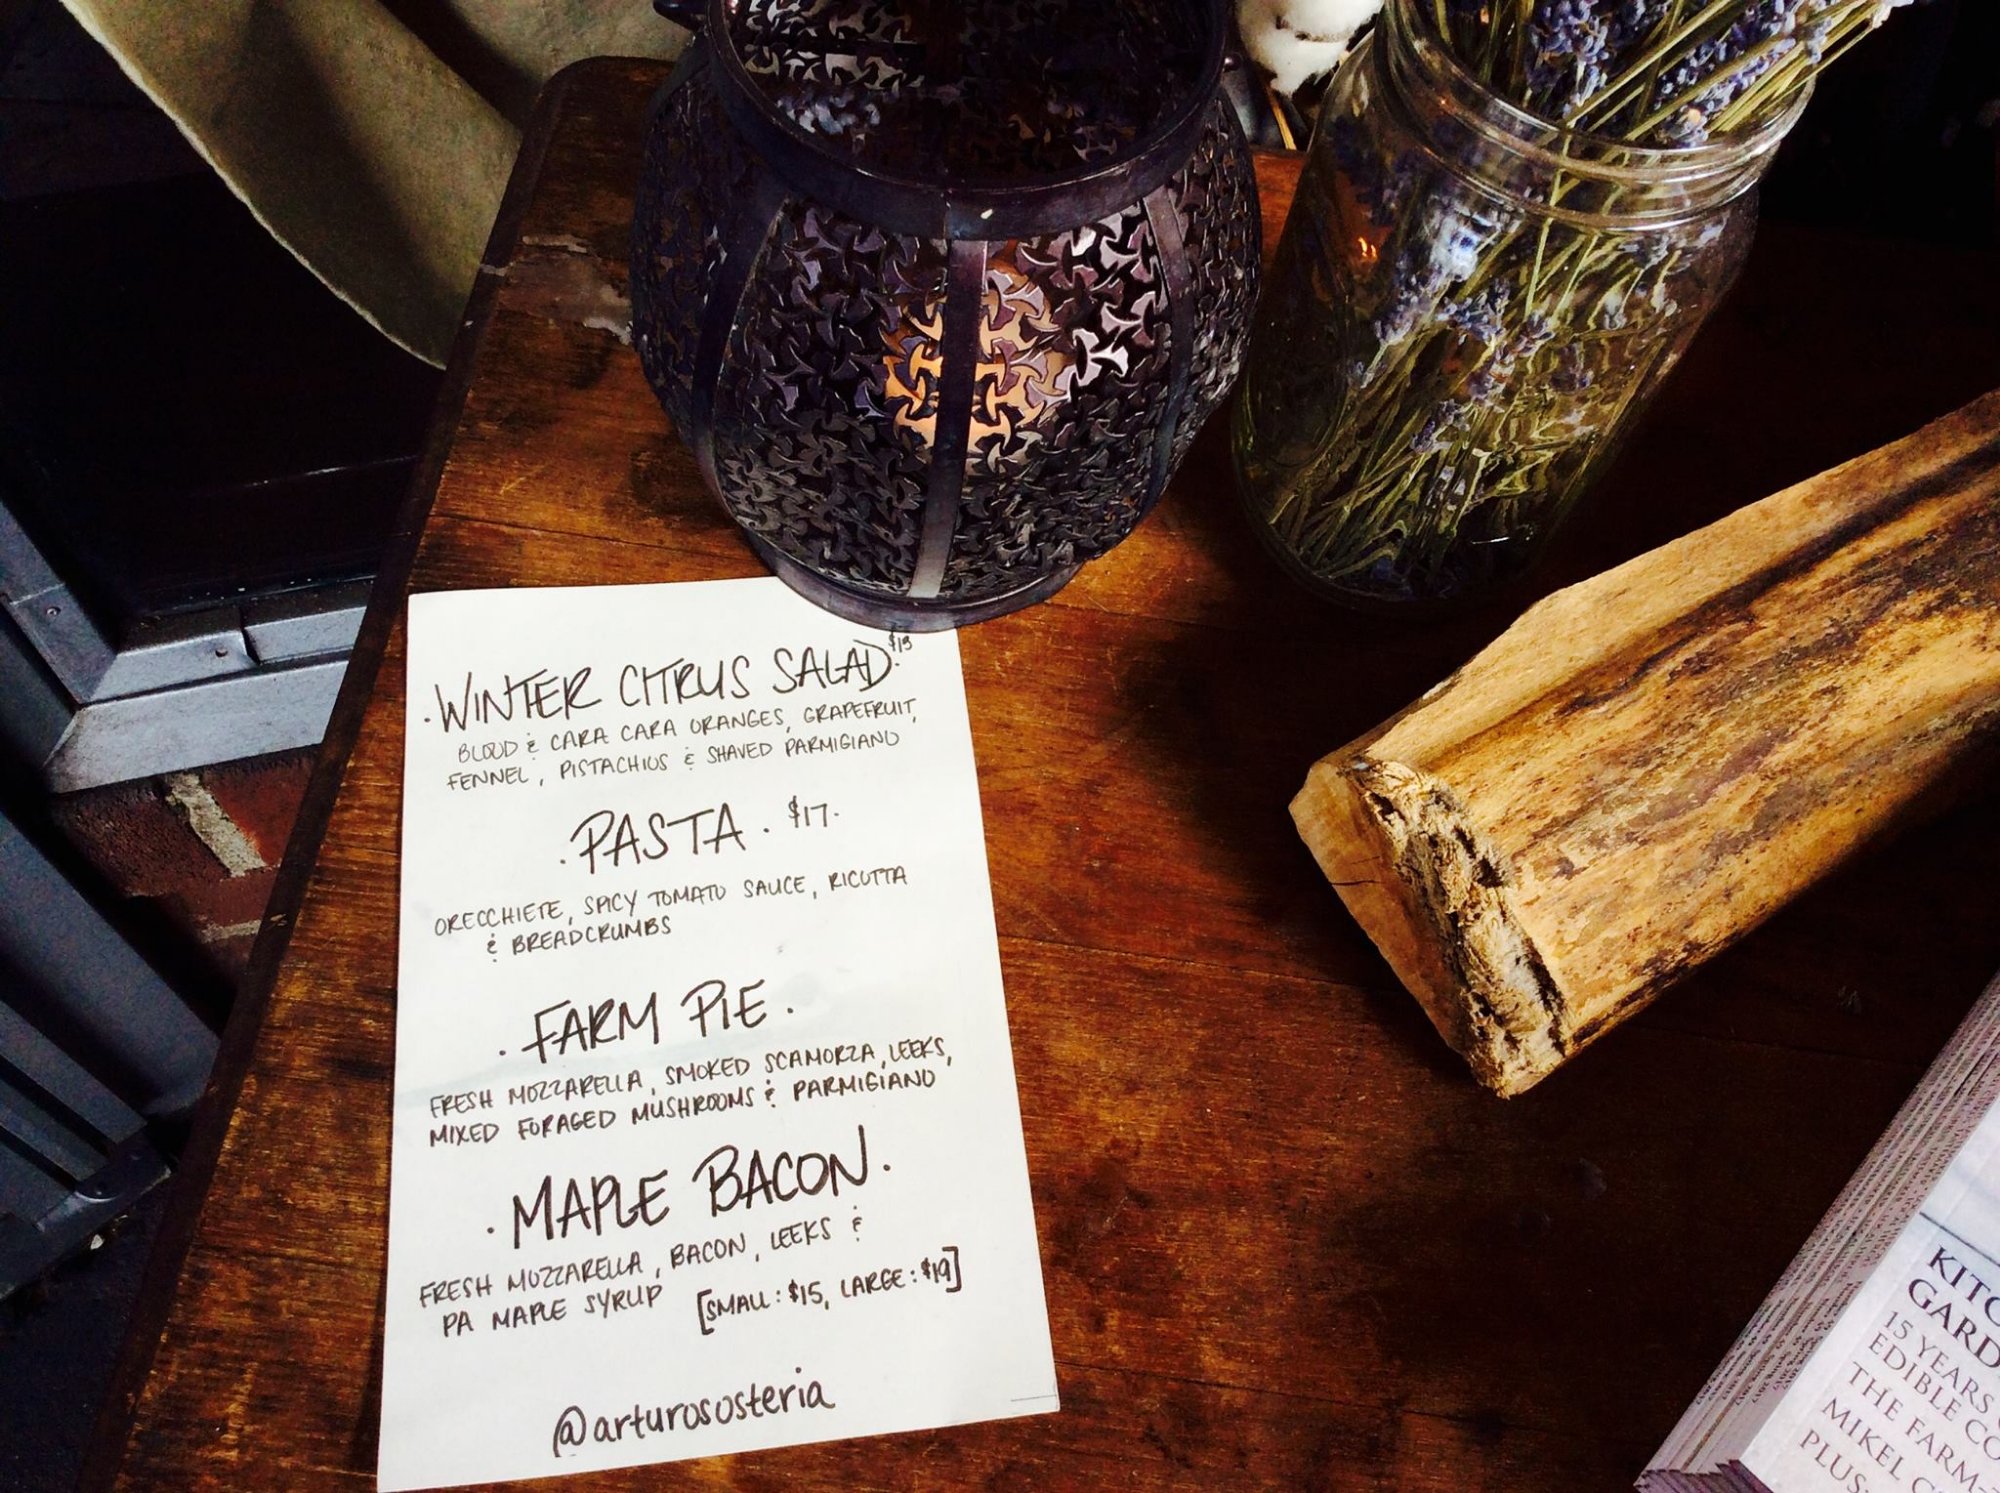 ·WINTER CITRUS SALAD·
BLOOD & CARA CARA ORANGES, GRAPEFRUIT,
FENNEL, PISTACHIOS & SHAVED PARMIGIANO
·PASTA· $17·
ORECCHIETE, SPICY TOMATO SAUCE, RICOTTA
& BREADCRUMBS
·FARM PIE·
FRESH MOZZARELLA, SMOKED SCAMORZA, LEEKS,
MIXED FORAGED MUSHROOMS & PARMIGIANO
·MAPLE BACON·
FRESH MOZZARELLA, BACON, LEEKS &
PA MAPLE SYRUP [SMALL: $15, LARGE: $19]
@arturososteria
15 YEARS
EDIBLE
THE FARM-
MIKEL
PLUS: